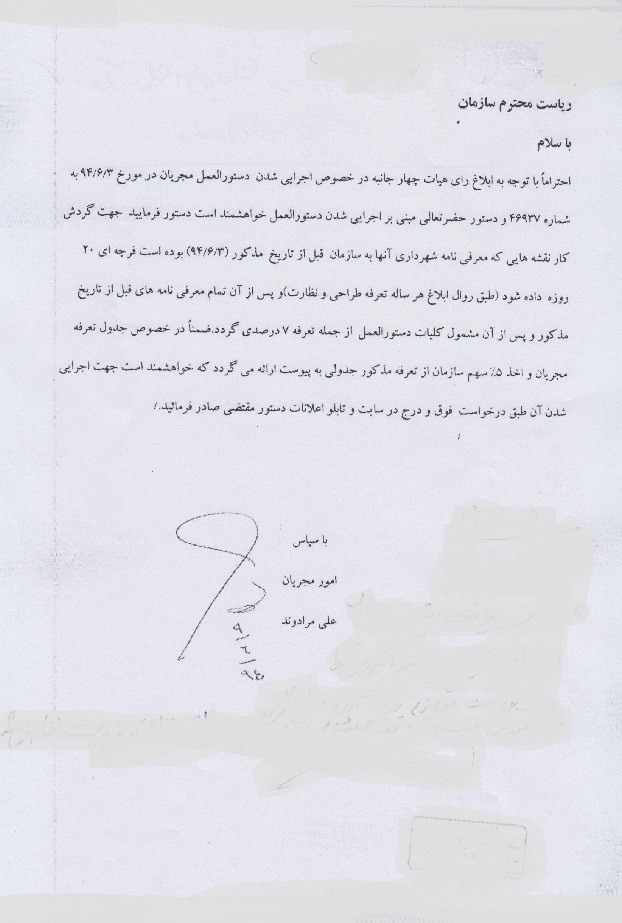 ریاست محترم سازمان
با سلام
احتراماً با توجه به ابلاغ رای هیات چهار جانبه در خصوص اجرایی شدن دستورالعمل مجریان در مورخ ۹۴/۶/۳ به
شماره ۴۶۹۳۷ و دستور حضرتعالی مبنی بر اجرایی شدن دستورالعمل خواهشمند است دستور فرمایید جهت گردش
کار نقشه هایی که معرفی نامه شهرداری آنها به سازمان قبل از تاریخ مذکور (۹۴/۶/۳) بوده است فرجه ای ۲۰
روزه داده شود (طبق روال ابلاغ هر ساله تعرفه طراحی و نظارت)و پس از آن تمام معرفی نامه های قبل از تاریخ
مذکور و پس از آن مشمول کلیات دستورالعمل از جمله تعرفه ۷ درصدی گردد.ضمناً در خصوص جدول تعرفه
مجریان و اخذ ۵٪ سهم سازمان از تعرفه مذکور جدولی به پیوست ارائه می گردد که خواهشمند است جهت اجرایی
شدن آن طبق درخواست فوق و درج در سایت و تابلو اعلانات دستور مقتضی صادر فرمائید./
با سپاس
امور مجریان
علی مرادوند